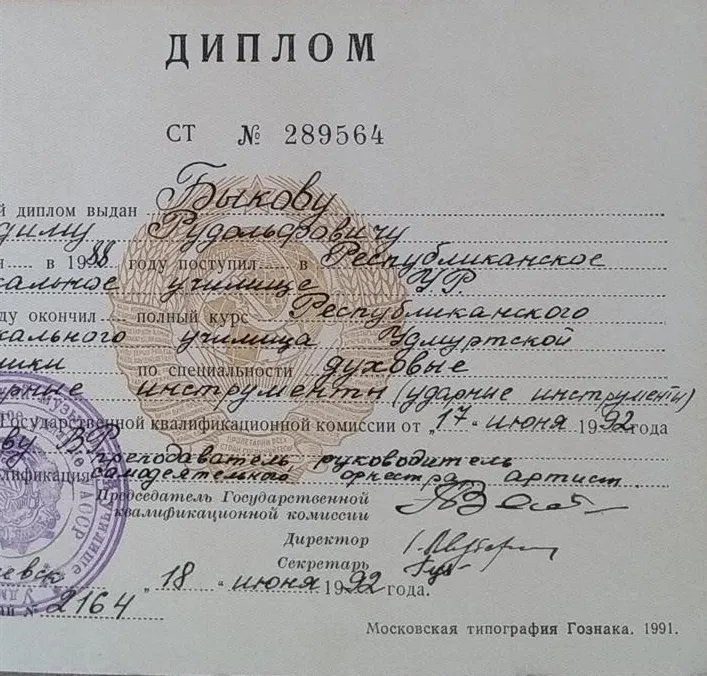 ДИПЛОМ
СТ № 289564
й диплом выдан Быкову
диму Рудольфовичу
в 1988 году поступил в Республиканское
кальное училище УР
ду окончил полный курс Республиканского
кального училища Удмуртской
ики по специальности духовые
рные инструменты (ударные инструменты)
Государственной квалификационной комиссии от „17“ июня 1992 года
ву В. преподаватель, руководитель
лификация самодеятельного оркестра, артист
Председатель Государственной
квалификационной комиссии
Директор
Секретарь
евск „18“ июня 1992 года.
№ 2164
Московская типография Гознака. 1991.